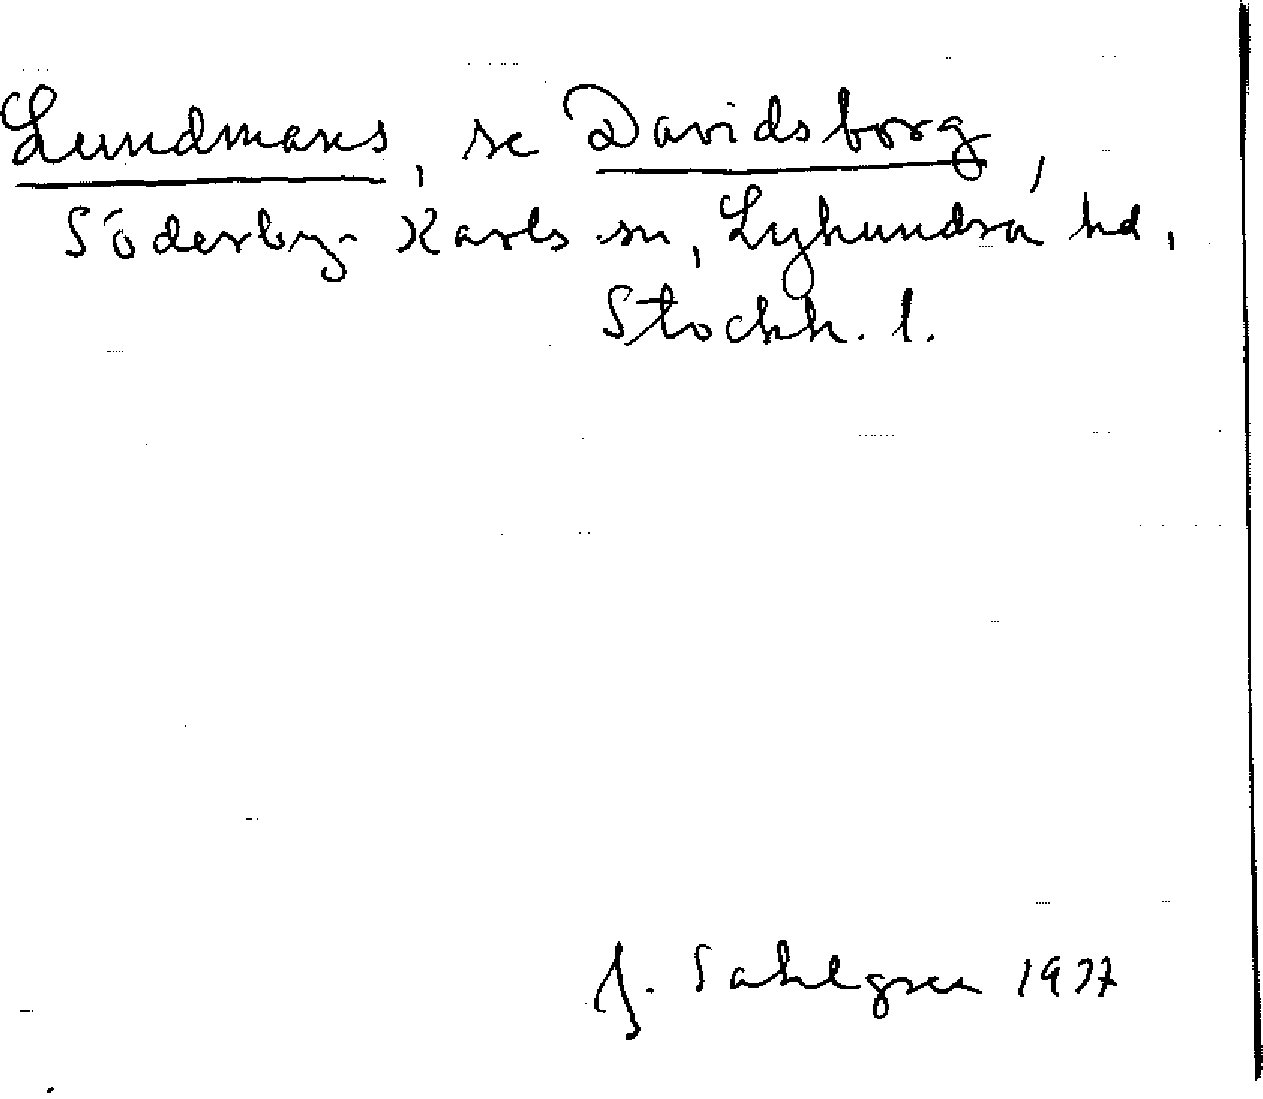 Lundmans, se Davidsborg,
Söderby-Karls sn, Lyhundra hd,
Stockh. l.
J. Sahlgren 1937